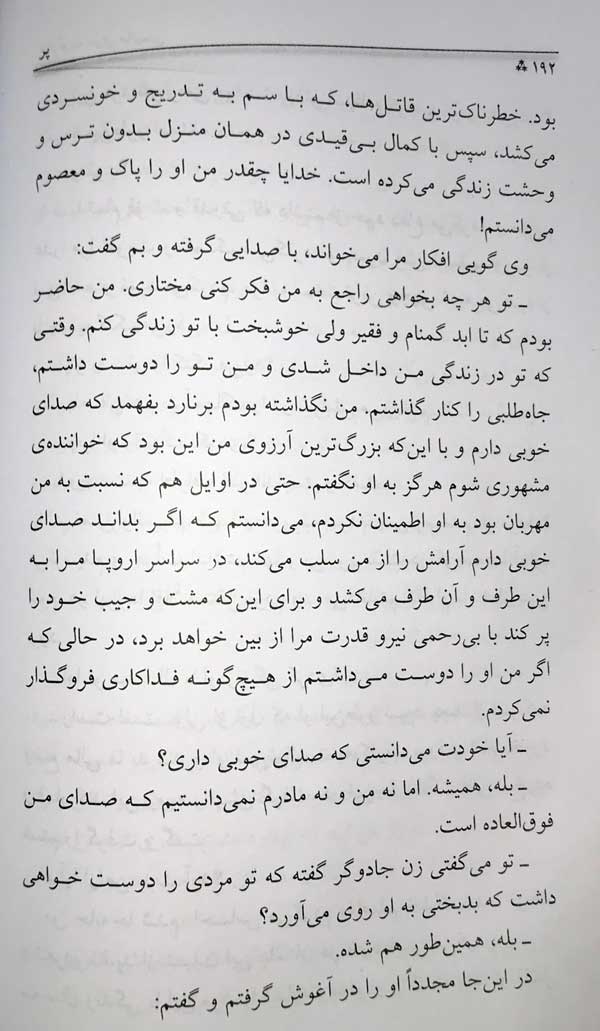 ۱۹۲ ⁂ پر
بود. خطرناک‌ترین قاتل‌ها، که با سم به تدریج و خونسردی
می‌کشد، سپس با کمال بی‌قیدی در همان منزل بدون ترس و
وحشت زندگی می‌کرده است. خدایا چقدر من او را پاک و معصوم
می‌دانستم!
وی گویی افکار مرا می‌خواند، با صدایی گرفته و بم گفت:
ـ تو هر چه بخواهی راجع به من فکر کنی مختاری. من حاضر
بودم که تا ابد گمنام و فقیر ولی خوشبخت با تو زندگی کنم. وقتی
که تو در زندگی من داخل شدی و من تو را دوست داشتم،
جاه‌طلبی را کنار گذاشتم. من نگذاشته بودم برنارد بفهمد که صدای
خوبی دارم و با این‌که بزرگ‌ترین آرزوی من این بود که خواننده‌ی
مشهوری شوم هرگز به او نگفتم. حتی در اوایل هم که نسبت به من
مهربان بود به او اطمینان نکردم، می‌دانستم که اگر بداند صدای
خوبی دارم آرامش را از من سلب می‌کند، در سراسر اروپا مرا به
این طرف و آن طرف می‌کشد و برای این‌که مشت و جیب خود را
پر کند با بی‌رحمی نیرو قدرت مرا از بین خواهد برد، در حالی که
اگر من او را دوست می‌داشتم از هیچ‌گونه فداکاری فروگذار
نمی‌کردم.
ـ آیا خودت می‌دانستی که صدای خوبی داری؟
ـ بله، همیشه. اما نه من و نه مادرم نمی‌دانستیم که صدای من
فوق‌العاده است.
ـ تو می‌گفتی زن جادوگر گفته که تو مردی را دوست خواهی
داشت که بدبختی به او روی می‌آورد؟
ـ بله، همین‌طور هم شده.
در این‌جا مجدداً او را در آغوش گرفتم و گفتم: